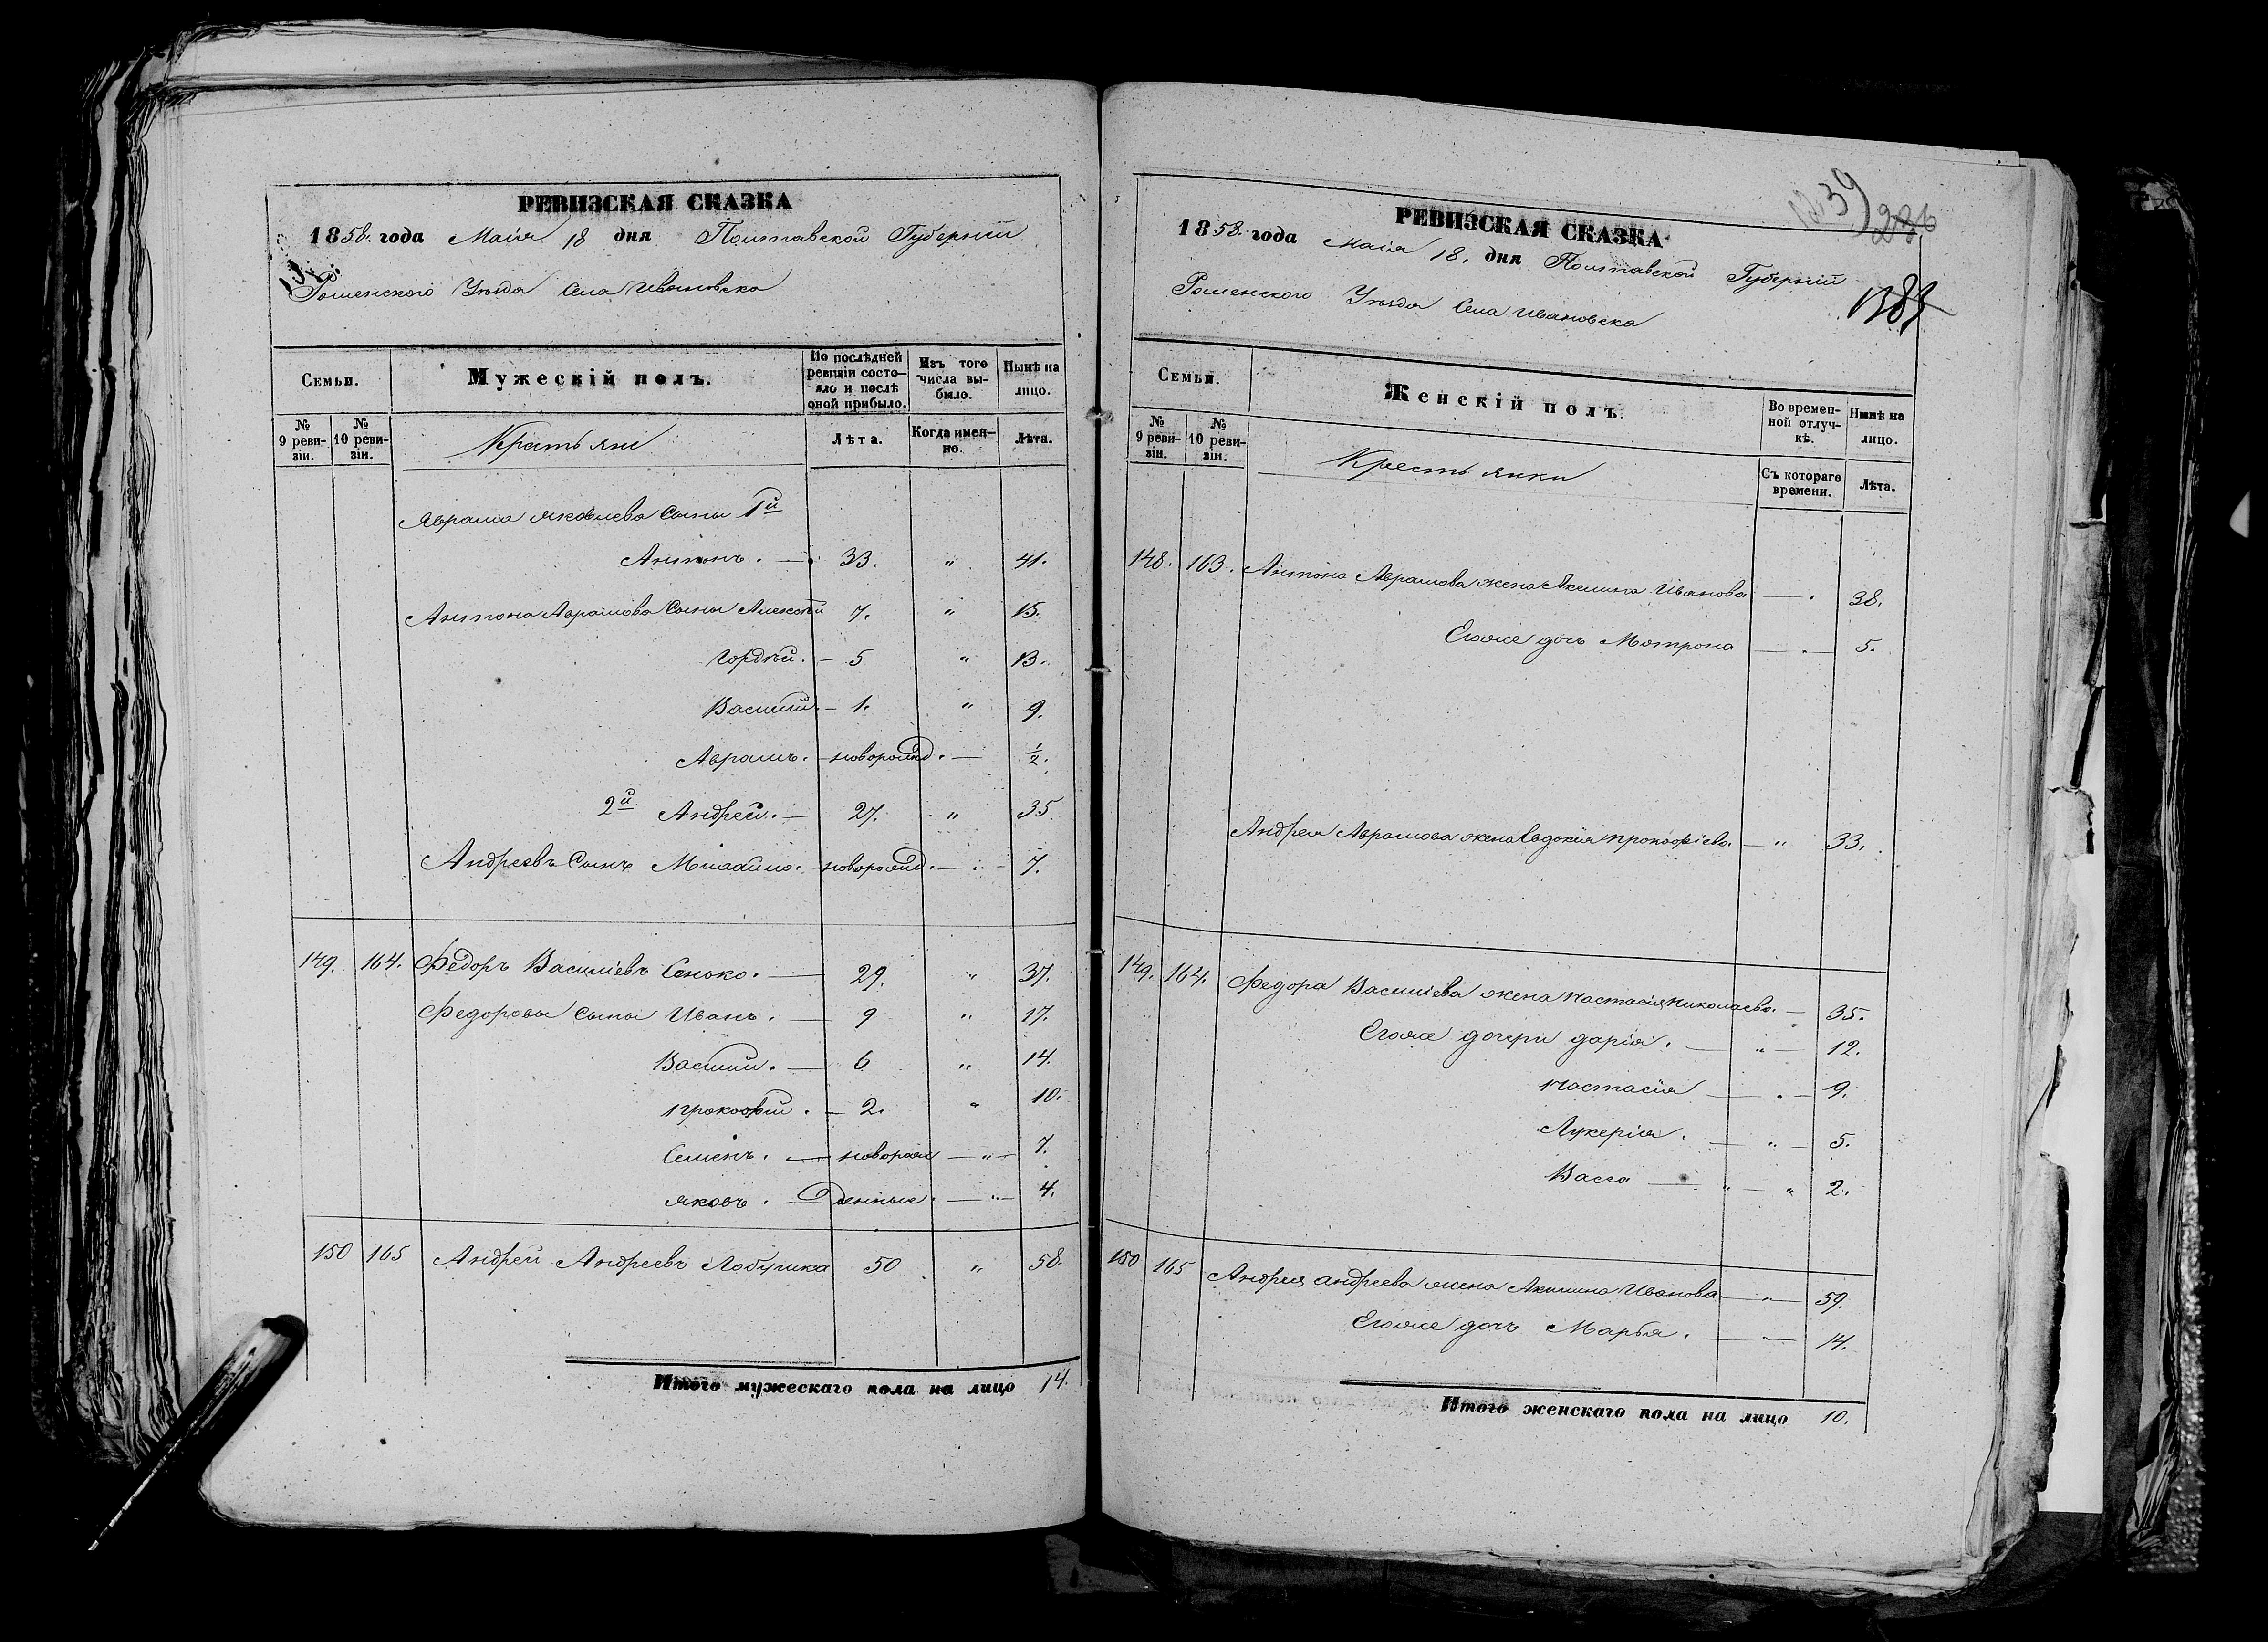 РЕВИЗСКАЯ СКАЗКА
1858. года Маія 18 дня Полтавской Губерніи
Роменского Уезда Села Ивановска
Семьи.
Мужескій полъ.
По послѣдней ревизіи состояло и послѣ оной прибыло.
Изъ того числа выбыло.
Нынѣ на лицо.
№ 9 ревизіи.
№ 10 ревизіи.
Крестьяне
Лѣта.
Когда именно.
Лѣта.
Аврама Яковлева Сыны 1й
Антонъ. — 33. " 41.
Антона Аврамова Сыны Алексѣй 7. " 15.
Гордѣй. — 5 " 13.
Василій — 1. " 9.
Аврамъ. — новорожд. — 1/2.
2й Андрей. — 27. " 35.
Андреевъ Сынъ Михайло. — новорожд. — 7.
149. 164. Федоръ Василіевъ Сенько. — 29. " 37.
Федоровы Сыны Иванъ. — 9 " 17.
Василій. — 6 " 14.
Прокофій. — 2. " 10.
Семенъ. — новорож — " — 7.
Яковъ. — денные. — " — 4.
150 165 Андрей Андреевъ Лобурика 50 " 58.
Итого мужескаго пола на лицо 14.
1239
286
РЕВИЗСКАЯ СКАЗКА
1858. года Маія 18. дня Полтавской Губерніи
Роменского Уезда Села Ивановска
Семьи.
Женскій полъ.
Во временной отлучкѣ.
Нынѣ на лицо.
№ 9 ревизіи.
№ 10 ревизіи.
Крестьянки
Съ котораго времени.
Лѣта.
148. 163. Антона Аврамова жена Акилина Иванова — . 38.
Егоже дочь Мотрона — . — 5.
Андрея Аврамова жена Евдокія Прокофіева. — " 33.
149. 164. Федора Василіева жена Настасія Николаева. — 35.
Егоже дочери Дарія. — " — 12.
Настасія — . — 9.
Лукерія. — " — 5.
Васса — " — " 2.
150 165 Андрея Андреева жена Акилина Иванова — " — 59.
Егоже дочь Марья. — " — 14.
Итого женскаго пола на лицо 10.